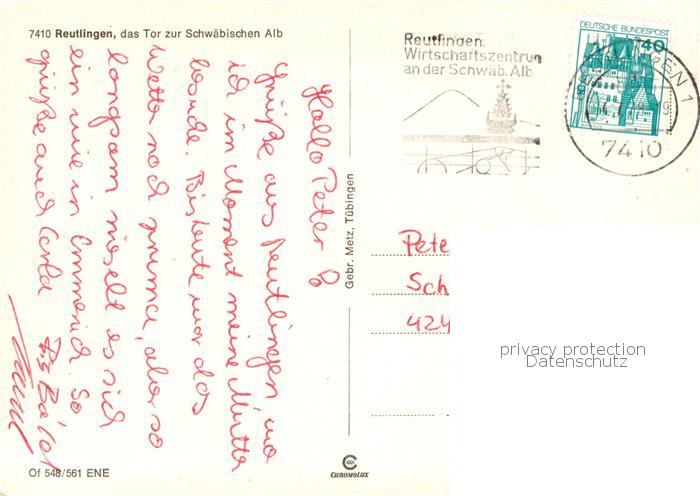 7410 Reutlingen, das Tor zur Schwäbischen Alb
Hallo Peter
Grüße aus Reutlingen, wo
ich im Moment meine Mutter
besuche. Bis heute war das
Wetter noch prima, aber so
langsam nieselt es sich
ein wie in Emmerich. So
grüße auch Carla Bis Bald
Of 548/561 ENE
Gebr. Metz, Tübingen
CHROMOLUX
Reutlingen.
Wirtschaftszentrum
an der Schwäb. Alb
DEUTSCHE BUNDESPOST
40
EN 1
7410
Pete
Sch
424
privacy protection
Datenschutz